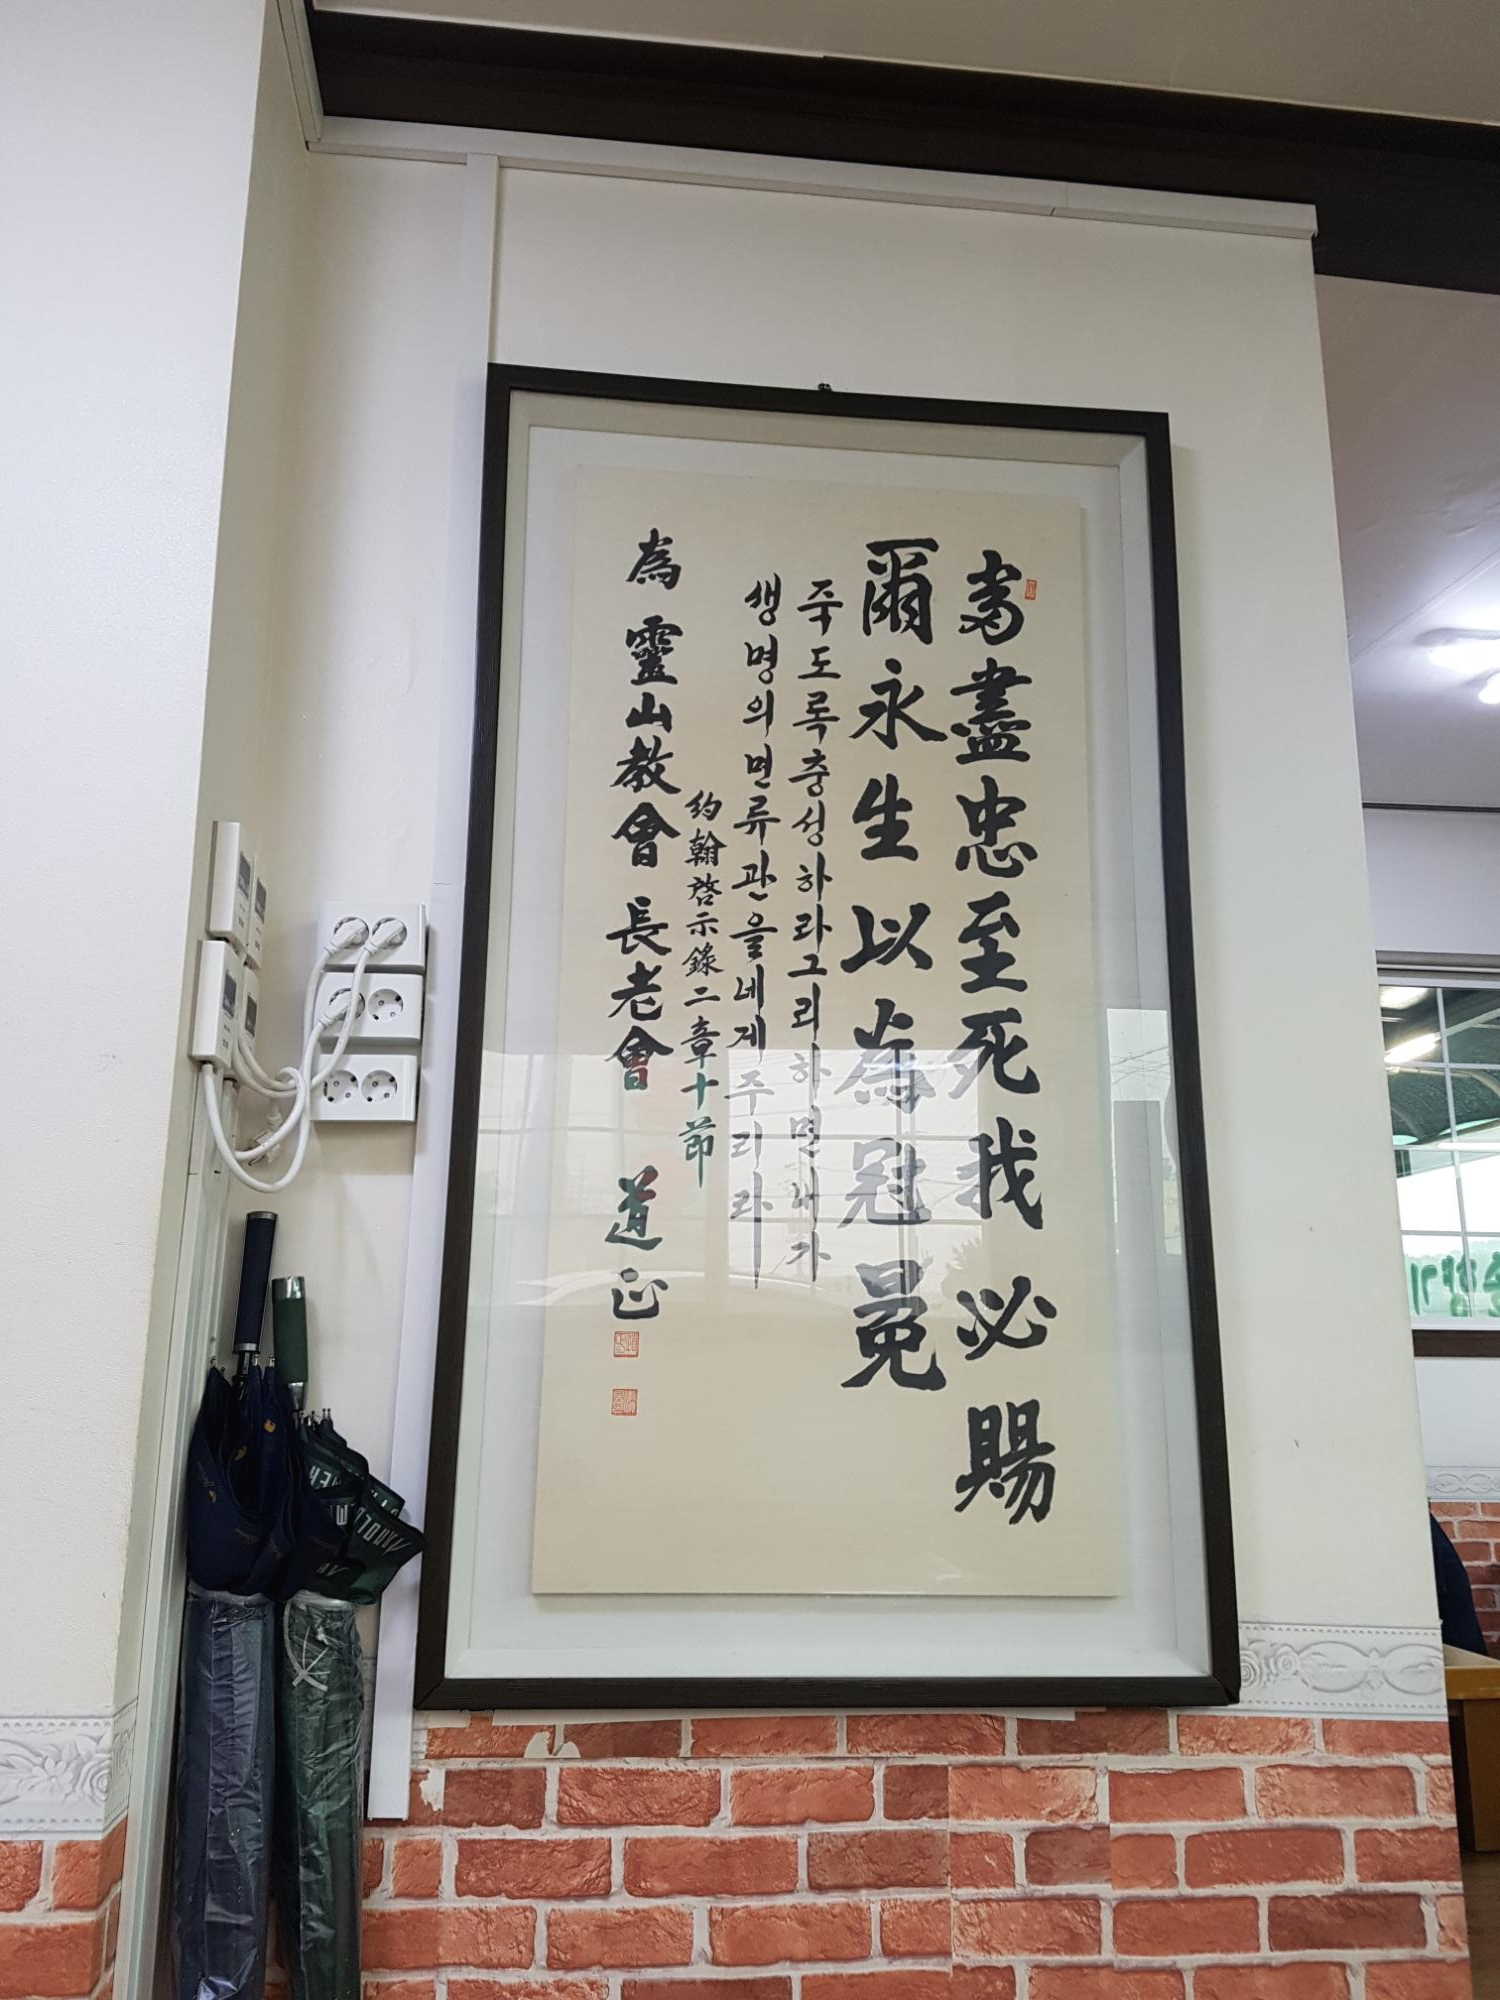 當盡忠至死我必賜
爾永生以為冠冕
죽도록충성하라그리하면내가
생명의면류관을네게주리라
約翰啓示錄二章十節
為 靈山教會 長老會 道正